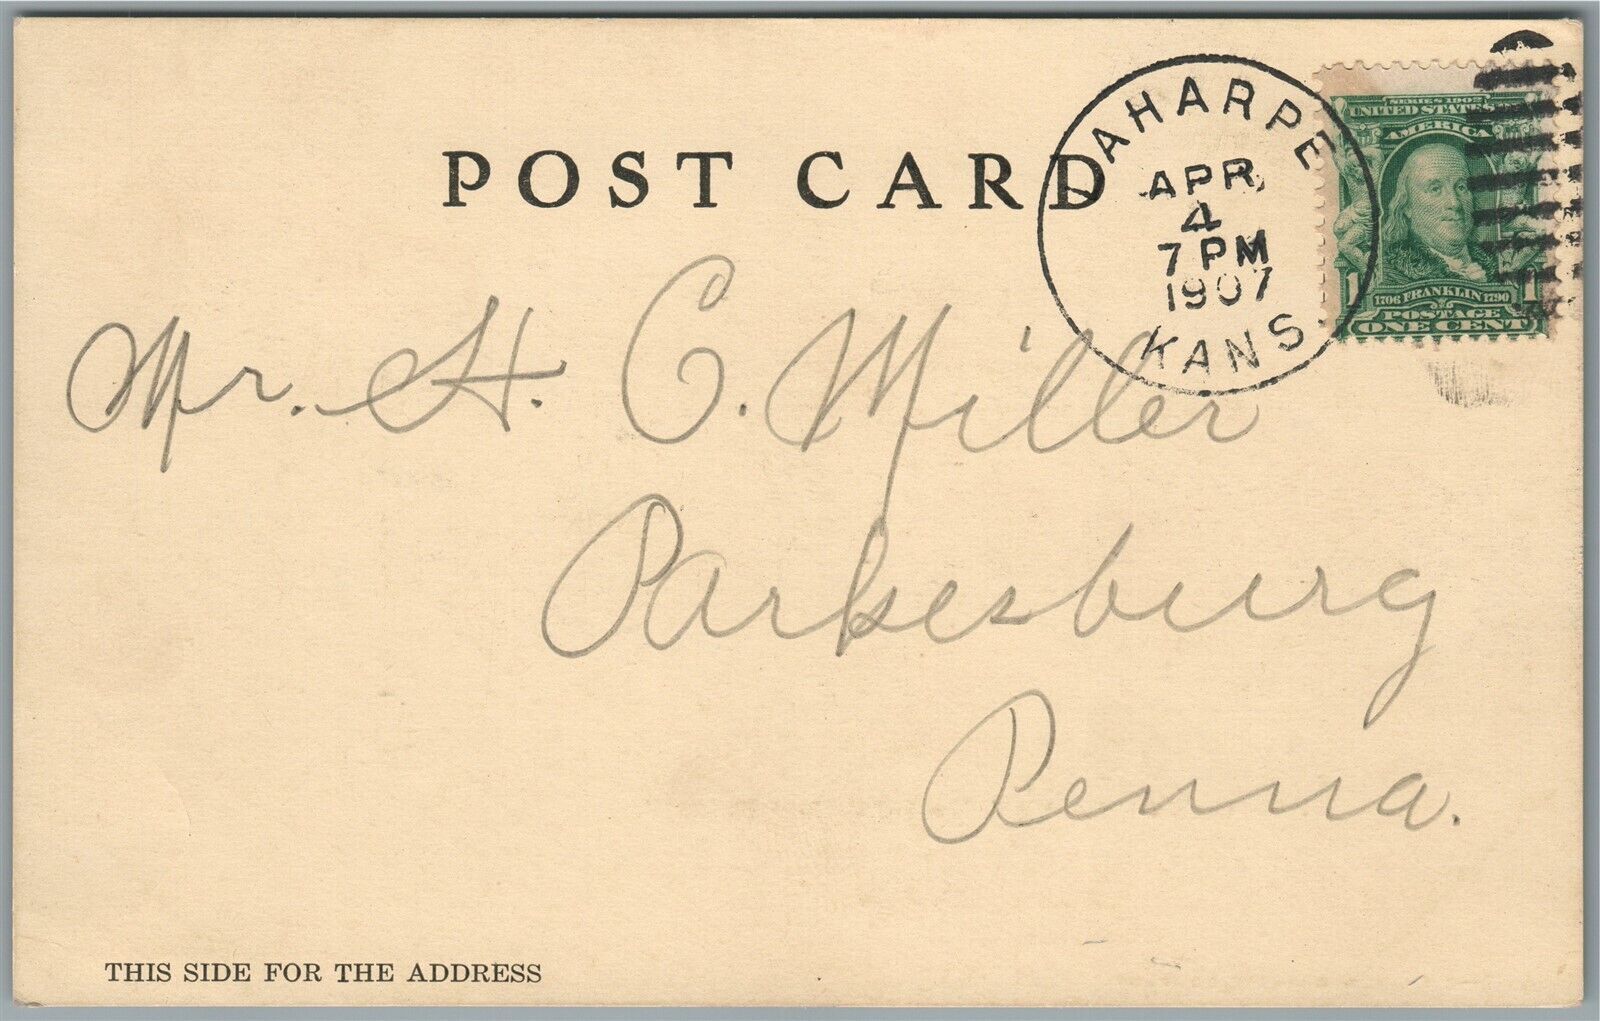 POST CARD
LAHARPE
APR.
4
7 PM
1907
KANS.
SERIES 1902
UNITED STATES
AMERICA
1706 FRANKLIN 1790
1 1
POSTAGE
ONE CENT
Mr. H. C. Miller
Parkesburg
Penna.
THIS SIDE FOR THE ADDRESS